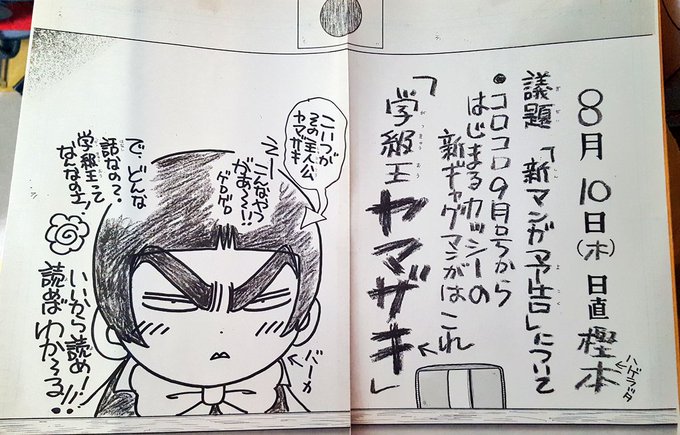 8月10日(木)日直 樫本
ハゲラッタ
議題「新マンガ予告」について
●コロコロ9月号から
はじまるカッシーの
新ギャグマンガはこれ
「学級王ヤマザキ」
がっきゅうおう
こいつが
その主人公
ヤマザキ
えーこんなやつ
がぁ〜!!
ゲロゲロ
で、どんな
話なの?
学級王って
なんなのさ!
いいから読め!
読めばわか〜る!!
バーカ